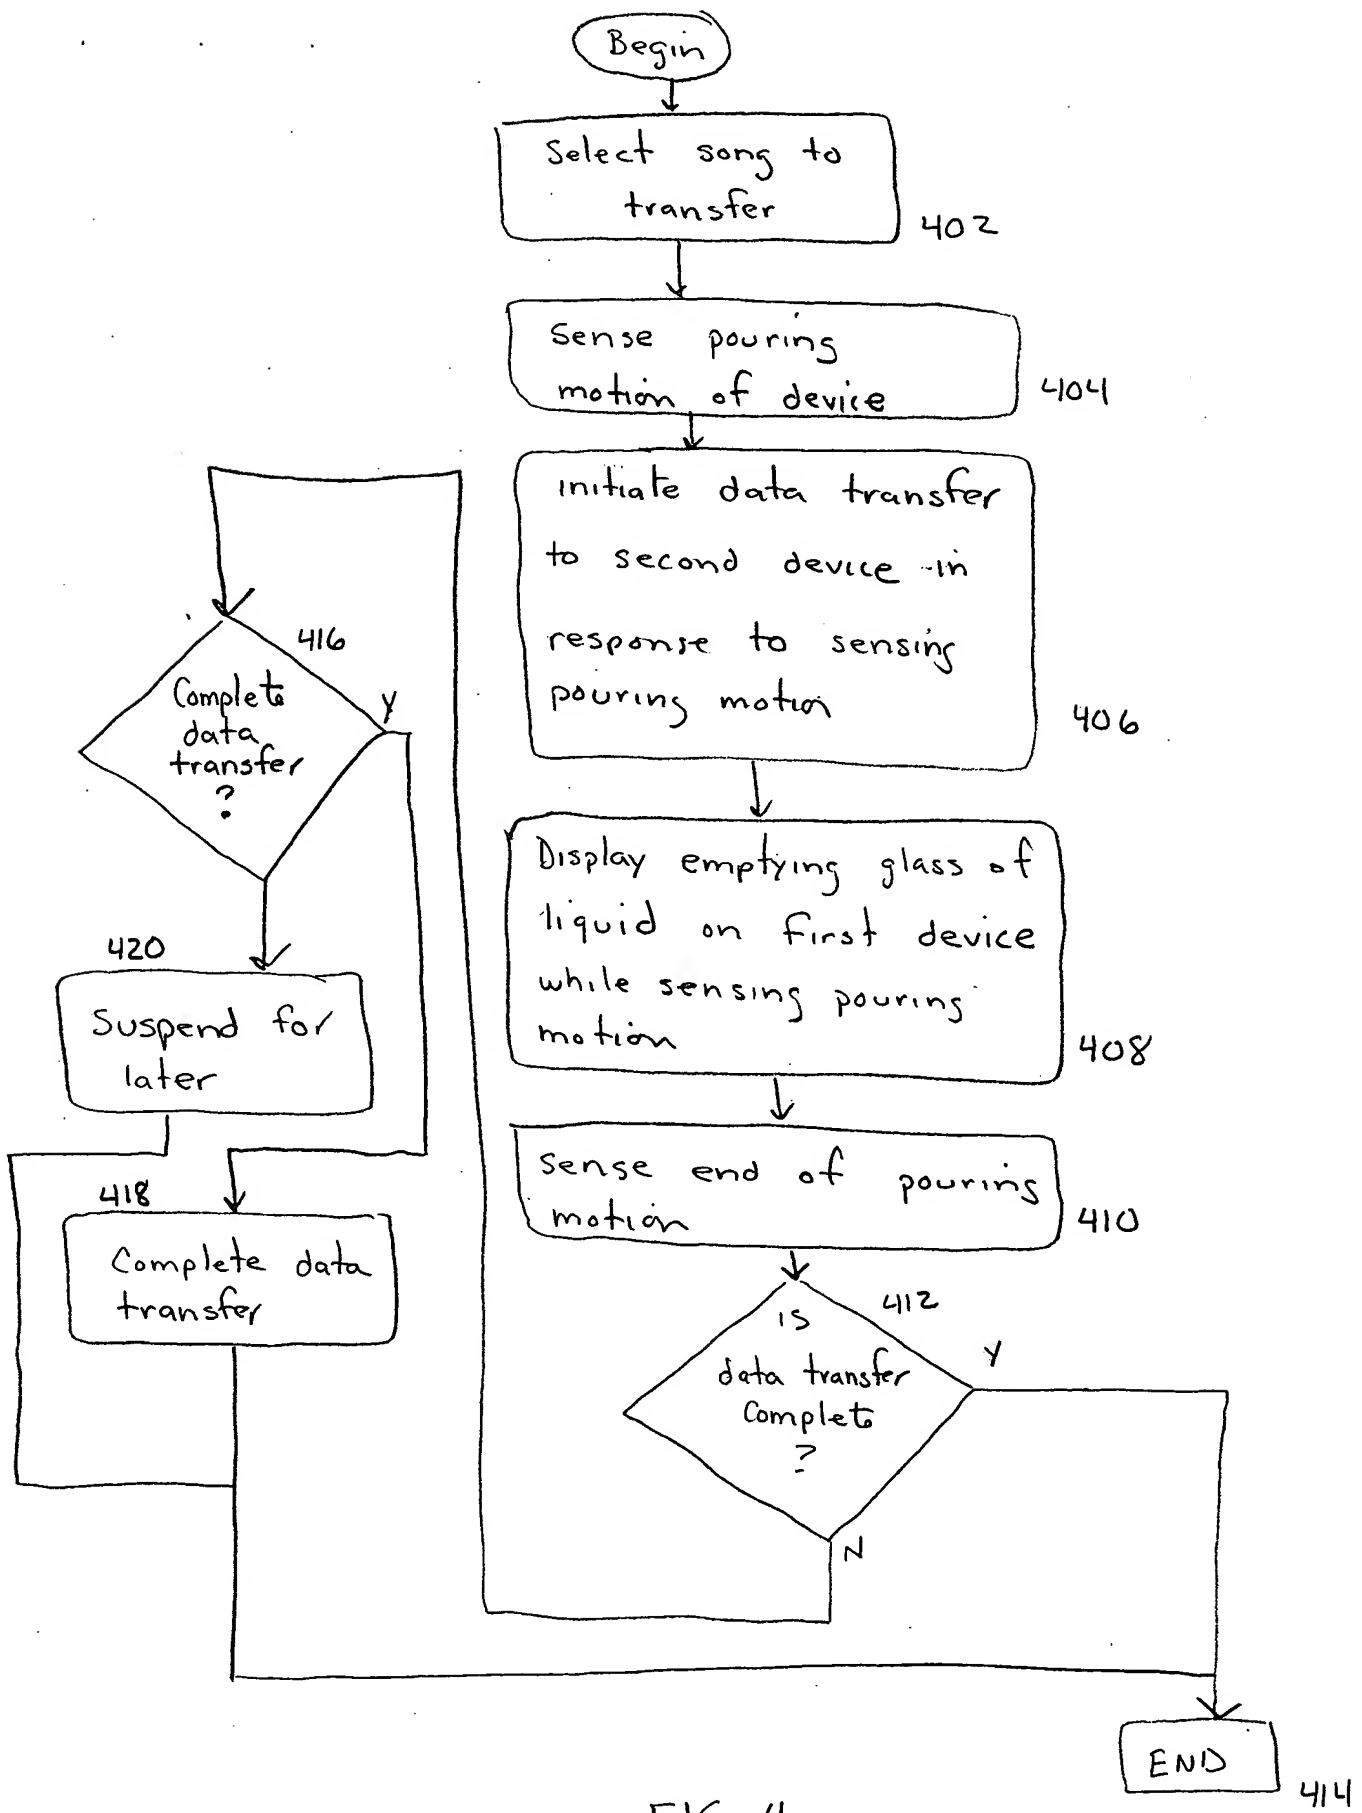 Begin
Select song to
transfer
402
Sense pouring
motion of device
404
initiate data transfer
to second device in
response to sensing
pouring motion
406
Display emptying glass of
liquid on first device
while sensing pouring
motion
408
Sense end of pouring
motion
410
412
is
data transfer
Complete
?
Y
N
416
Complete
data
transfer
?
Y
420
Suspend for
later
418
Complete data
transfer
END
414
FIG. 4